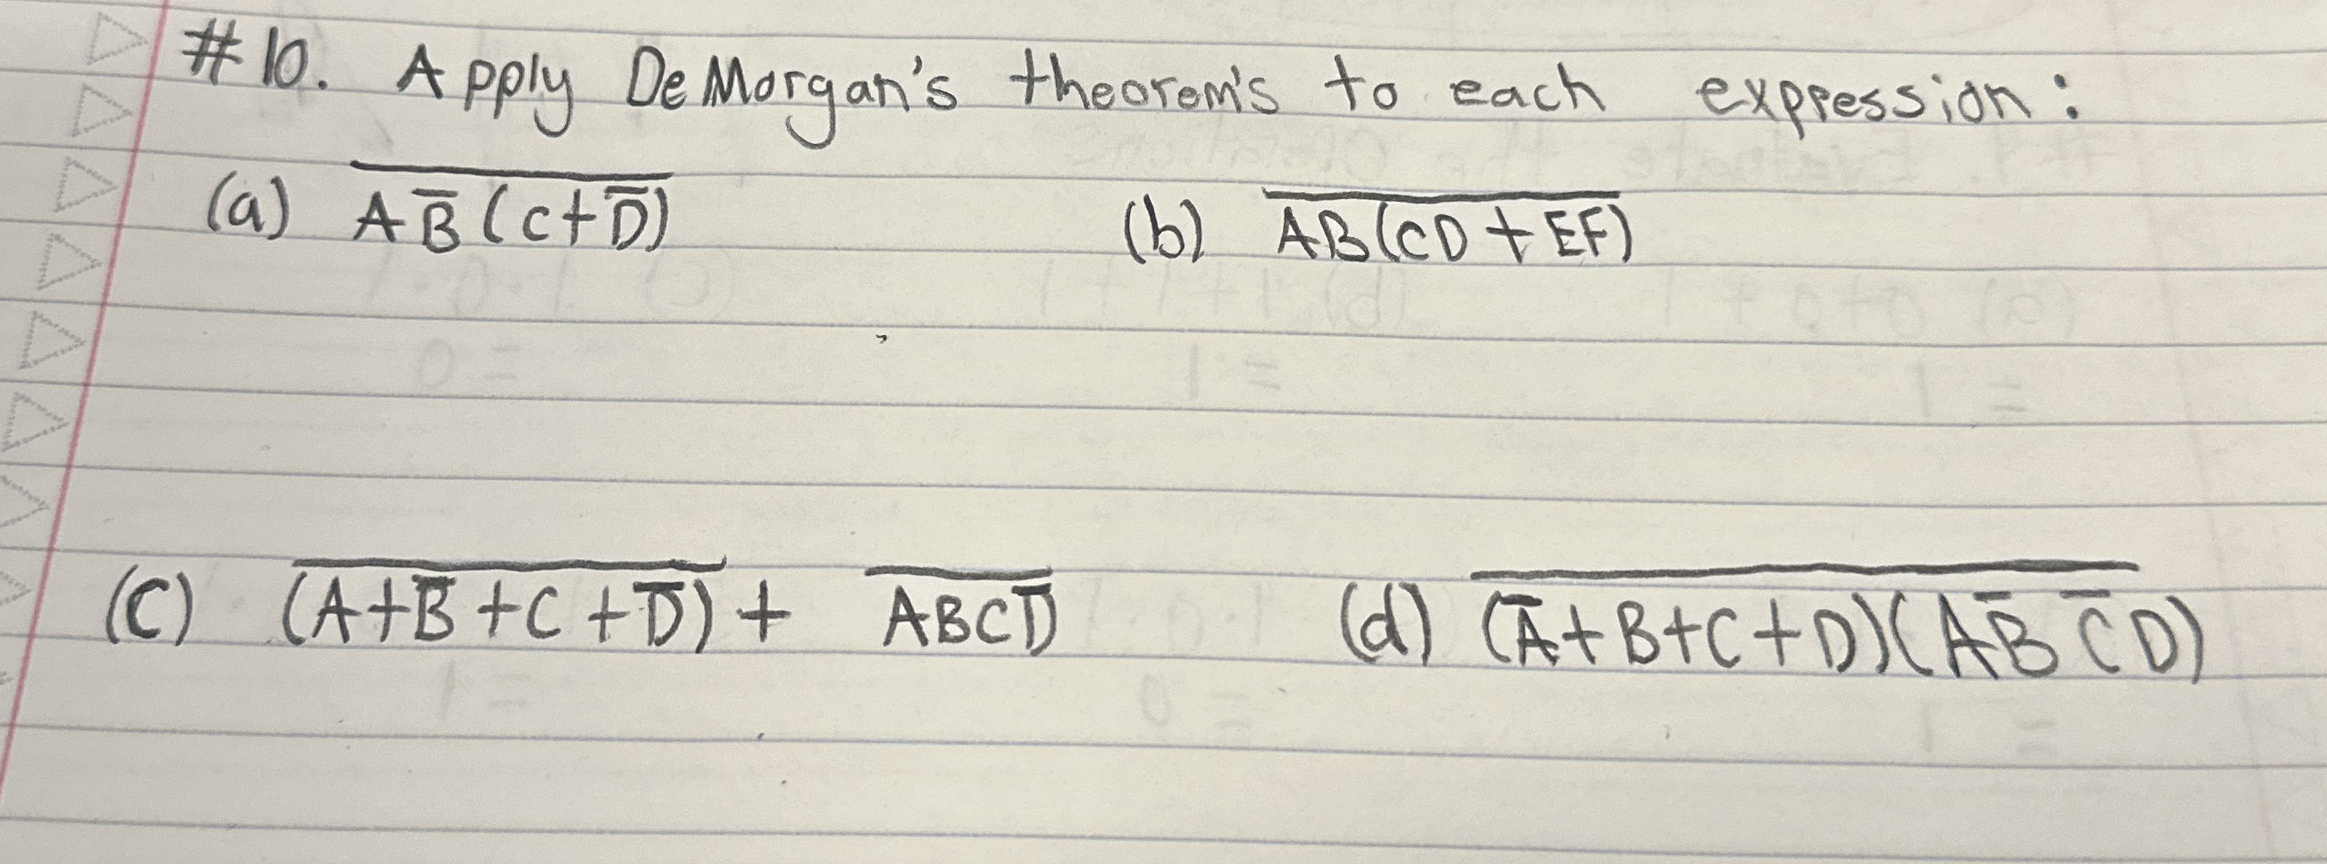 #10. Apply DeMorgan's theorem's to each expression:
(a) \overline{A\overline{B}(C+\overline{D})} (b) \overline{AB(CD+EF)}
(C) \overline{(A+\overline{B}+C+\overline{D})} + \overline{ABC\overline{D}} (d) \overline{(\overline{A}+B+C+D)(A\overline{B}\,\overline{C}D)}